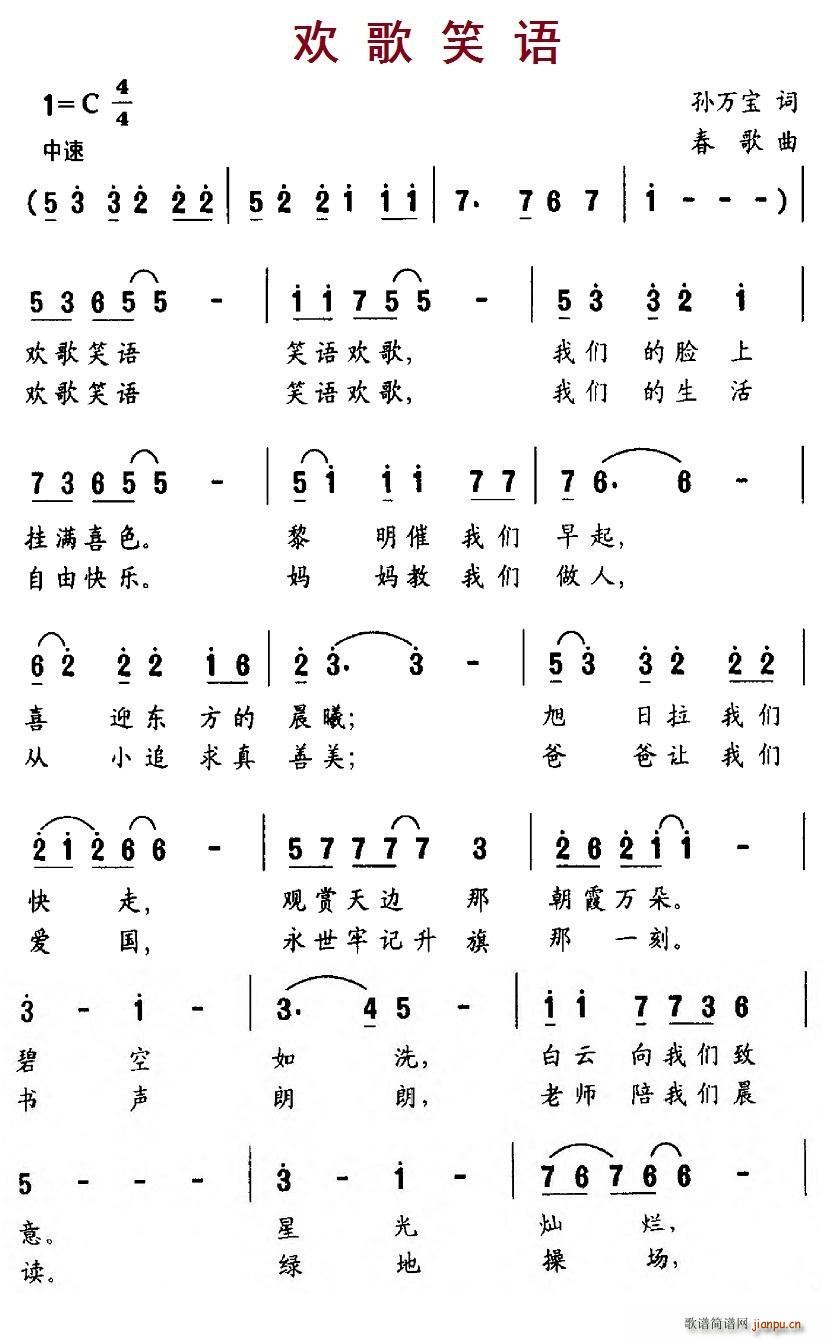 欢歌笑语
1=C 4/4
孙万宝 词
中速
春 歌 曲
(5 3̇ 3̇ 2̇ 2̇ 2̇ | 5 2̇ 2̇ 1̇ 1̇ 1̇ | 7. 7 6 7 | 1̇ - - -) |
5 3 6 5 5 - | 1̇ 1̇ 7 5 5 - | 5 3̇ 3̇ 2̇ 1̇ |
欢歌笑语 笑语欢歌, 我们 的脸 上
欢歌笑语 笑语欢歌, 我们 的生 活
7 3 6 5 5 - | 5 1̇ 1̇ 1̇ 7 7 | 7 6. 6 - |
挂满喜色。 黎 明催 我们 早起,
自由快乐。 妈 妈教 我们 做人,
6 2̇ 2̇ 2̇ 1̇ 6 | 2̇ 3̇. 3̇ - | 5 3̇ 3̇ 2̇ 2̇ 2̇ |
喜 迎东 方的 晨曦; 旭 日拉 我们
从 小追 求真 善美; 爸 爸让 我们
2̇ 1̇ 2̇ 6 6 - | 5 7 7 7 7 3 | 2̇ 6 2̇ 1̇ 1̇ - |
快 走, 观赏天边 那 朝霞万朵。
爱 国, 永世牢记升 旗 那 一刻。
3̇ - 1̇ - | 3̇. 4 5 - | 1̇ 1̇ 7 7 3 6 |
碧 空 如 洗, 白云 向我们致
书 声 朗 朗, 老师 陪我们晨
5 - - - | 3̇ - 1̇ - | 7 6 7 6 6 - |
意。 星 光 灿 烂,
读。 绿 地 操 场,
歌谱简谱网
jianpu.cn